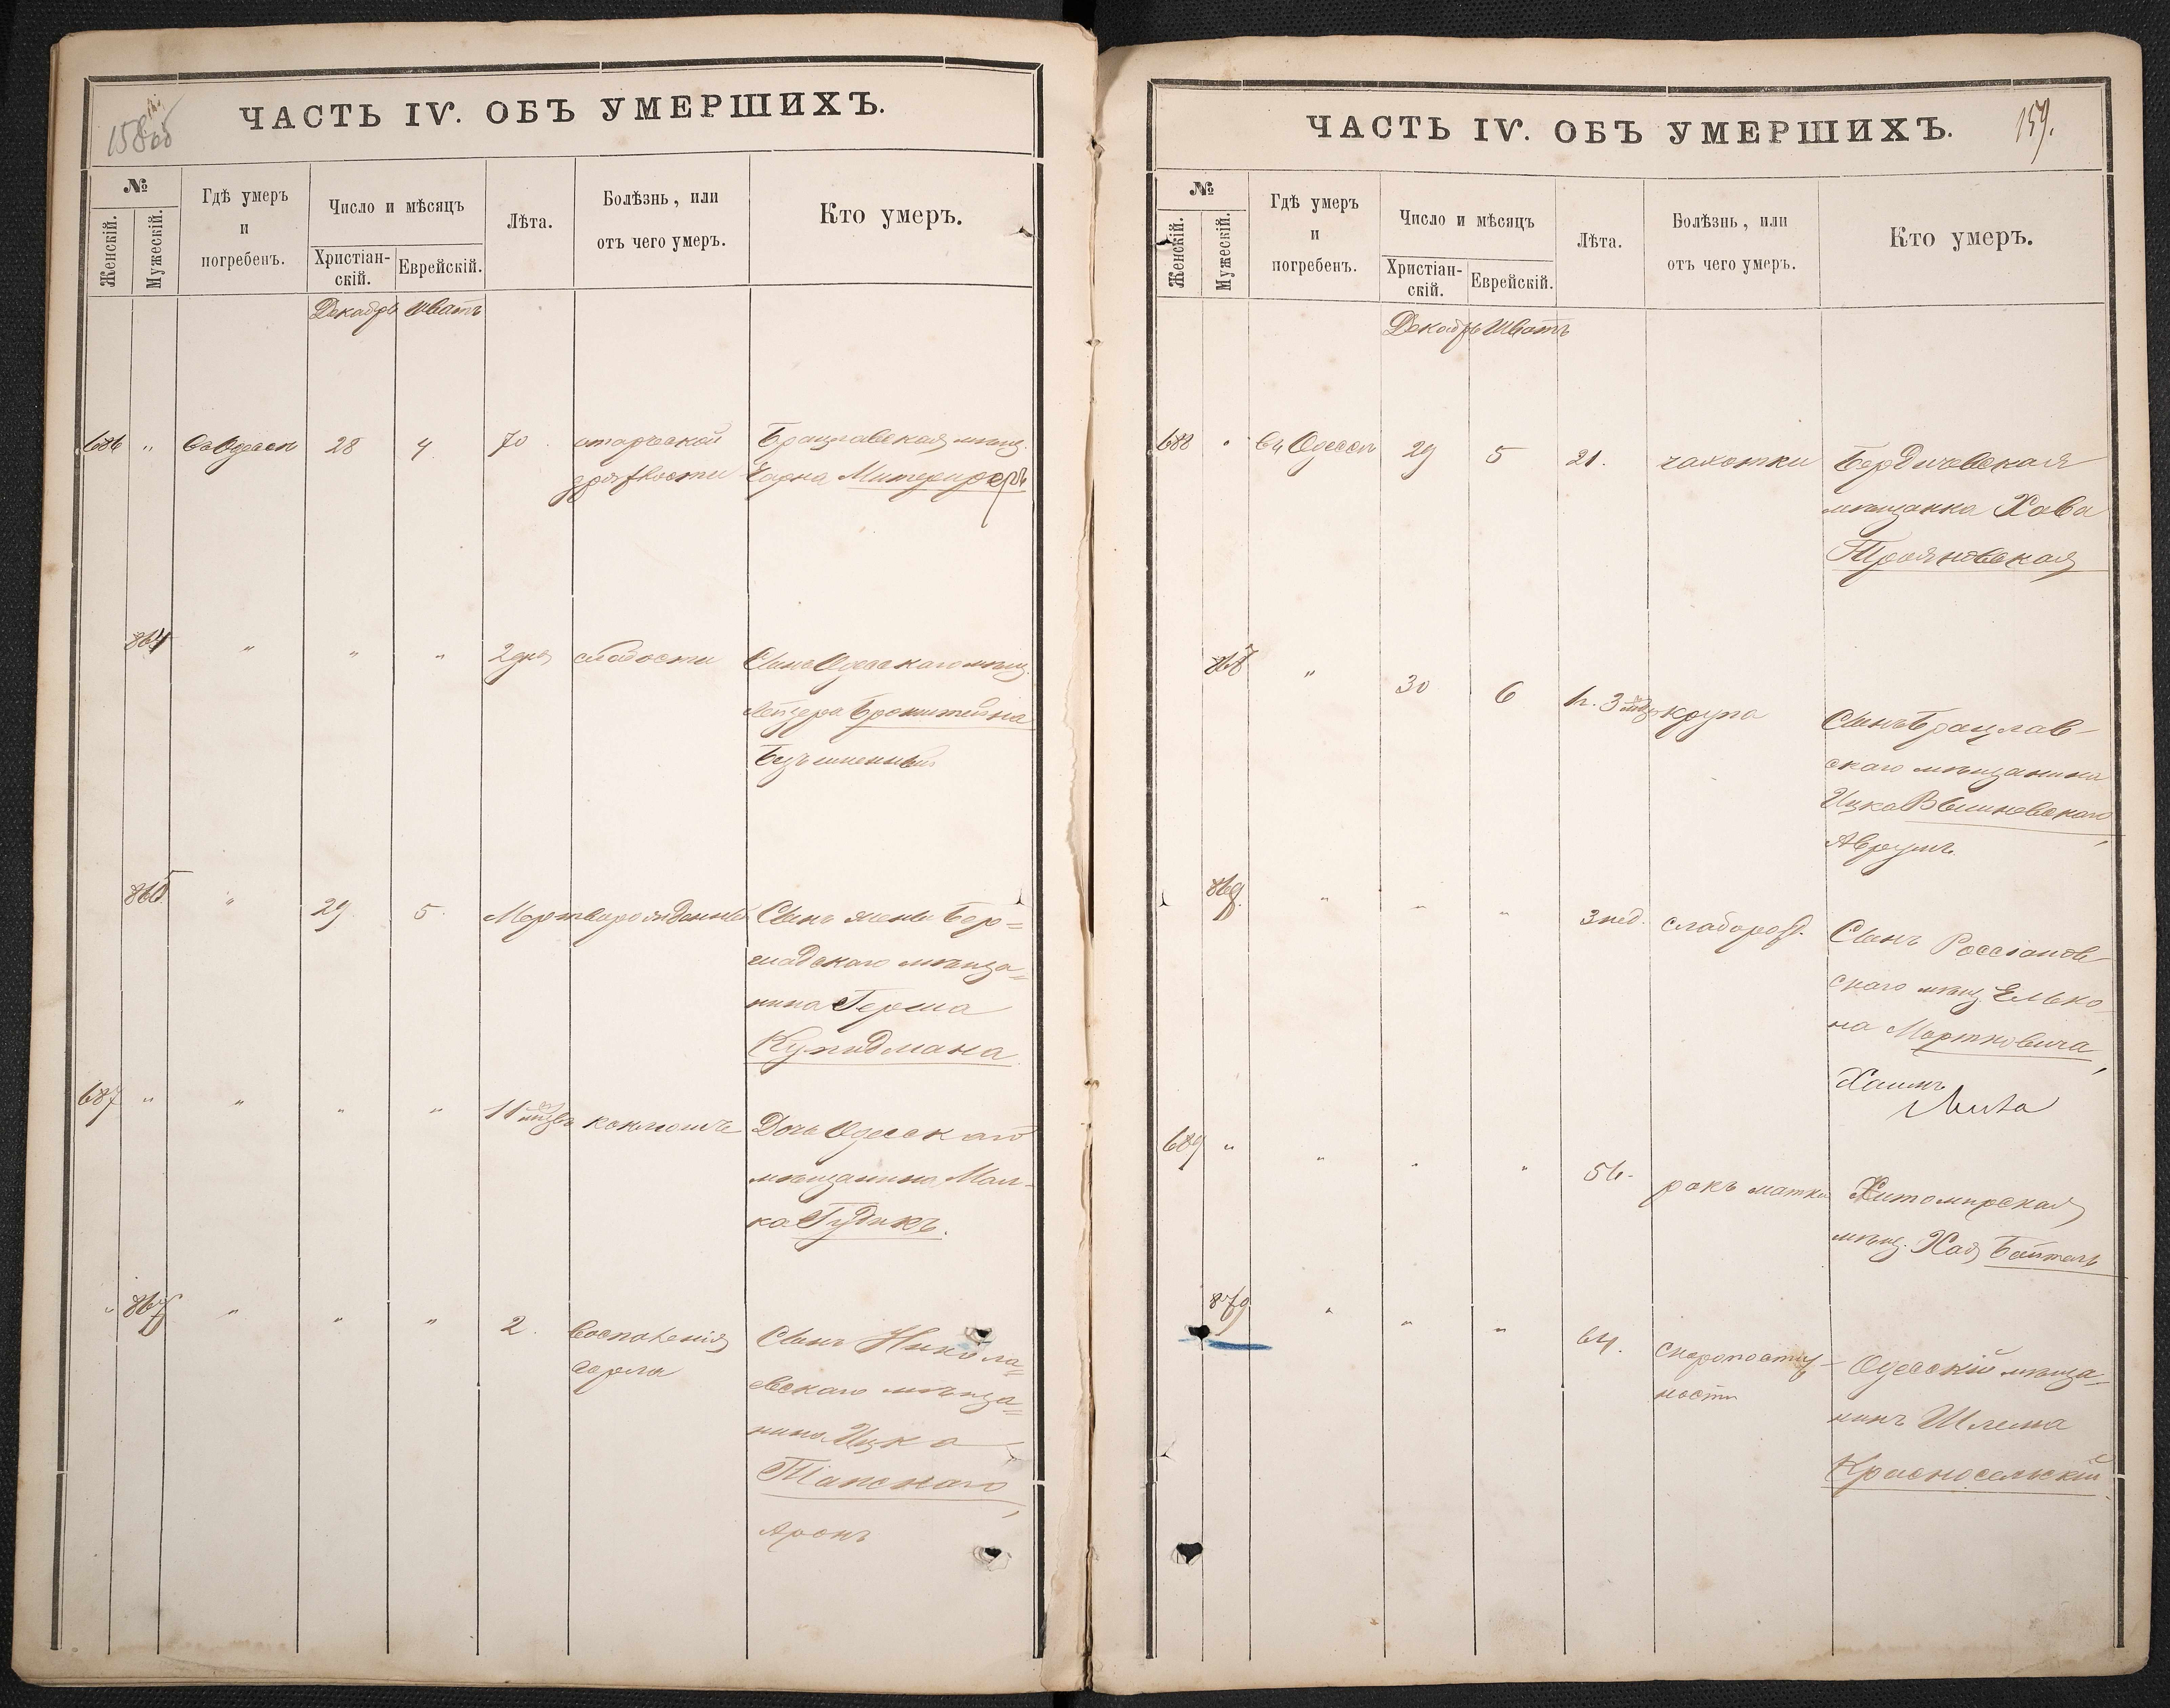 158 об
ЧАСТЬ IV. ОБЪ УМЕРШИХЪ.
№
Женскій.
Мужескій.
Гдѣ умеръ
и
погребенъ.
Число и мѣсяцъ
Христіан-
скій.
Еврейскій.
Лѣта.
Болѣзнь, или
отъ чего умеръ.
Кто умеръ.
Декабрь Шватъ
686 " въ Одессѣ 28 4 70 старческой Брацлавская мѣщ.
дряхлости Чарна
864 " " " 2 дня слабости Сынъ Одесскаго мѣщ.
Лейзера Бронштейна
Безъименный
865 " 29 5. Мертворожденный Сынъ жены Бер=
шадскаго мѣща=
нина Герша
Купидмана
687 " " " " 11 мѣс. коклюшъ Дочь Одесскаго
мѣщанина Мал-
ка Гудикъ.
" 867 " " " 2. воспаленія Сынъ Никола=
горла евскаго мѣща=
нина Ицка
Тапскаго,
Аронъ
ЧАСТЬ IV. ОБЪ УМЕРШИХЪ.
159.
№
Женскій.
Мужескій.
Гдѣ умеръ
и
погребенъ.
Число и мѣсяцъ
Христіан-
скій.
Еврейскій.
Лѣта.
Болѣзнь, или
отъ чего умеръ.
Кто умеръ.
Декабрь Шватъ
688 " въ Одессѣ 29 5 21. чахотки Бердичевская
мѣщанка Хава
Трояновская
868 " 30 6 крупа Сынъ Брацлав-
скаго мѣщанина
Ицка Вышневскаго,
Аврумъ.
869. " " " 3 нед. слаборожд. Сынъ
скаго мѣщ. Елько
на Мортковича,
Хаимъ
689 " " " " 56. ракъ матки Житомирская
мѣщ. Хая Байтель
870 " " " 64. скоропостиж- Одесскій мѣща-
ности нинъ Шлема
Красносельскій